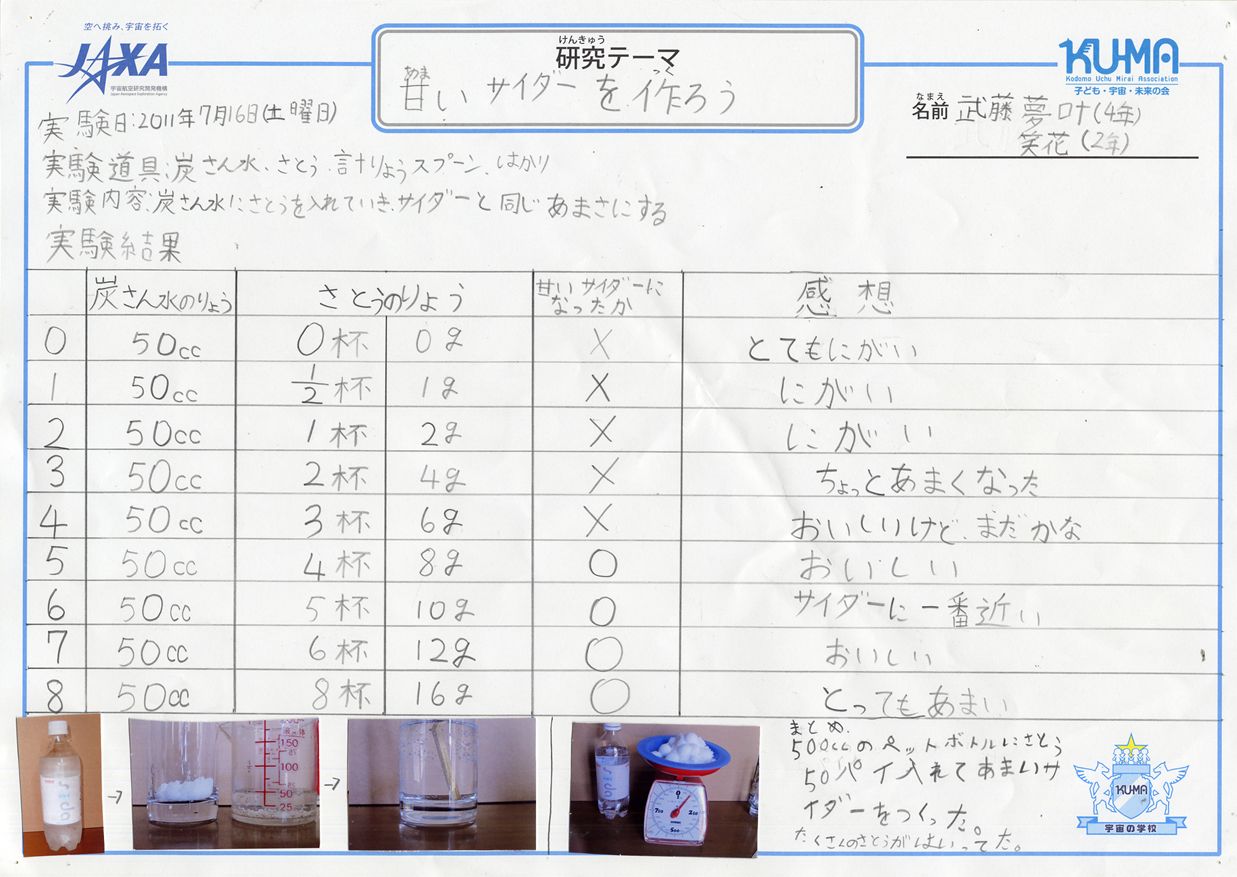 空へ挑み、宇宙を拓く
JAXA
宇宙航空研究開発機構
Japan Aerospace Exploration Agency
けんきゅう
研究テーマ
あま つく
甘い サイダー を 作ろう
KU-MA
Kodomo Uchu Mirai Association
子ども・宇宙・未来の会
なまえ
名前 武藤 夢叶(4年)
笑花(2年)
実験日:2011年7月16日(土曜日)
実験道具:炭さん水、さとう、計りょうスプーン、はかり
実験内容:炭さん水にさとうを入れていき、サイダーと同じあまさにする
実験結果
炭さん水のりょう さとうのりょう 甘いサイダーになったか 感想
0 50cc 0杯 0g × とてもにがい
1 50cc 1/2杯 1g × にがい
2 50cc 1杯 2g × にがい
3 50cc 2杯 4g × ちょっとあまくなった
4 50cc 3杯 6g × おいしいけど、まだかな
5 50cc 4杯 8g ○ おいしい
6 50cc 5杯 10g ○ サイダーに一番近い
7 50cc 6杯 12g ○ おいしい
8 50cc 8杯 16g ○ とってもあまい
まとめ.
500ccのペットボトルにさとう
50パイ入れてあまいサ
イダーをつくった。
たくさんのさとうがはいってた。
→
→
150
100
50
25
KU-MA
宇宙の学校